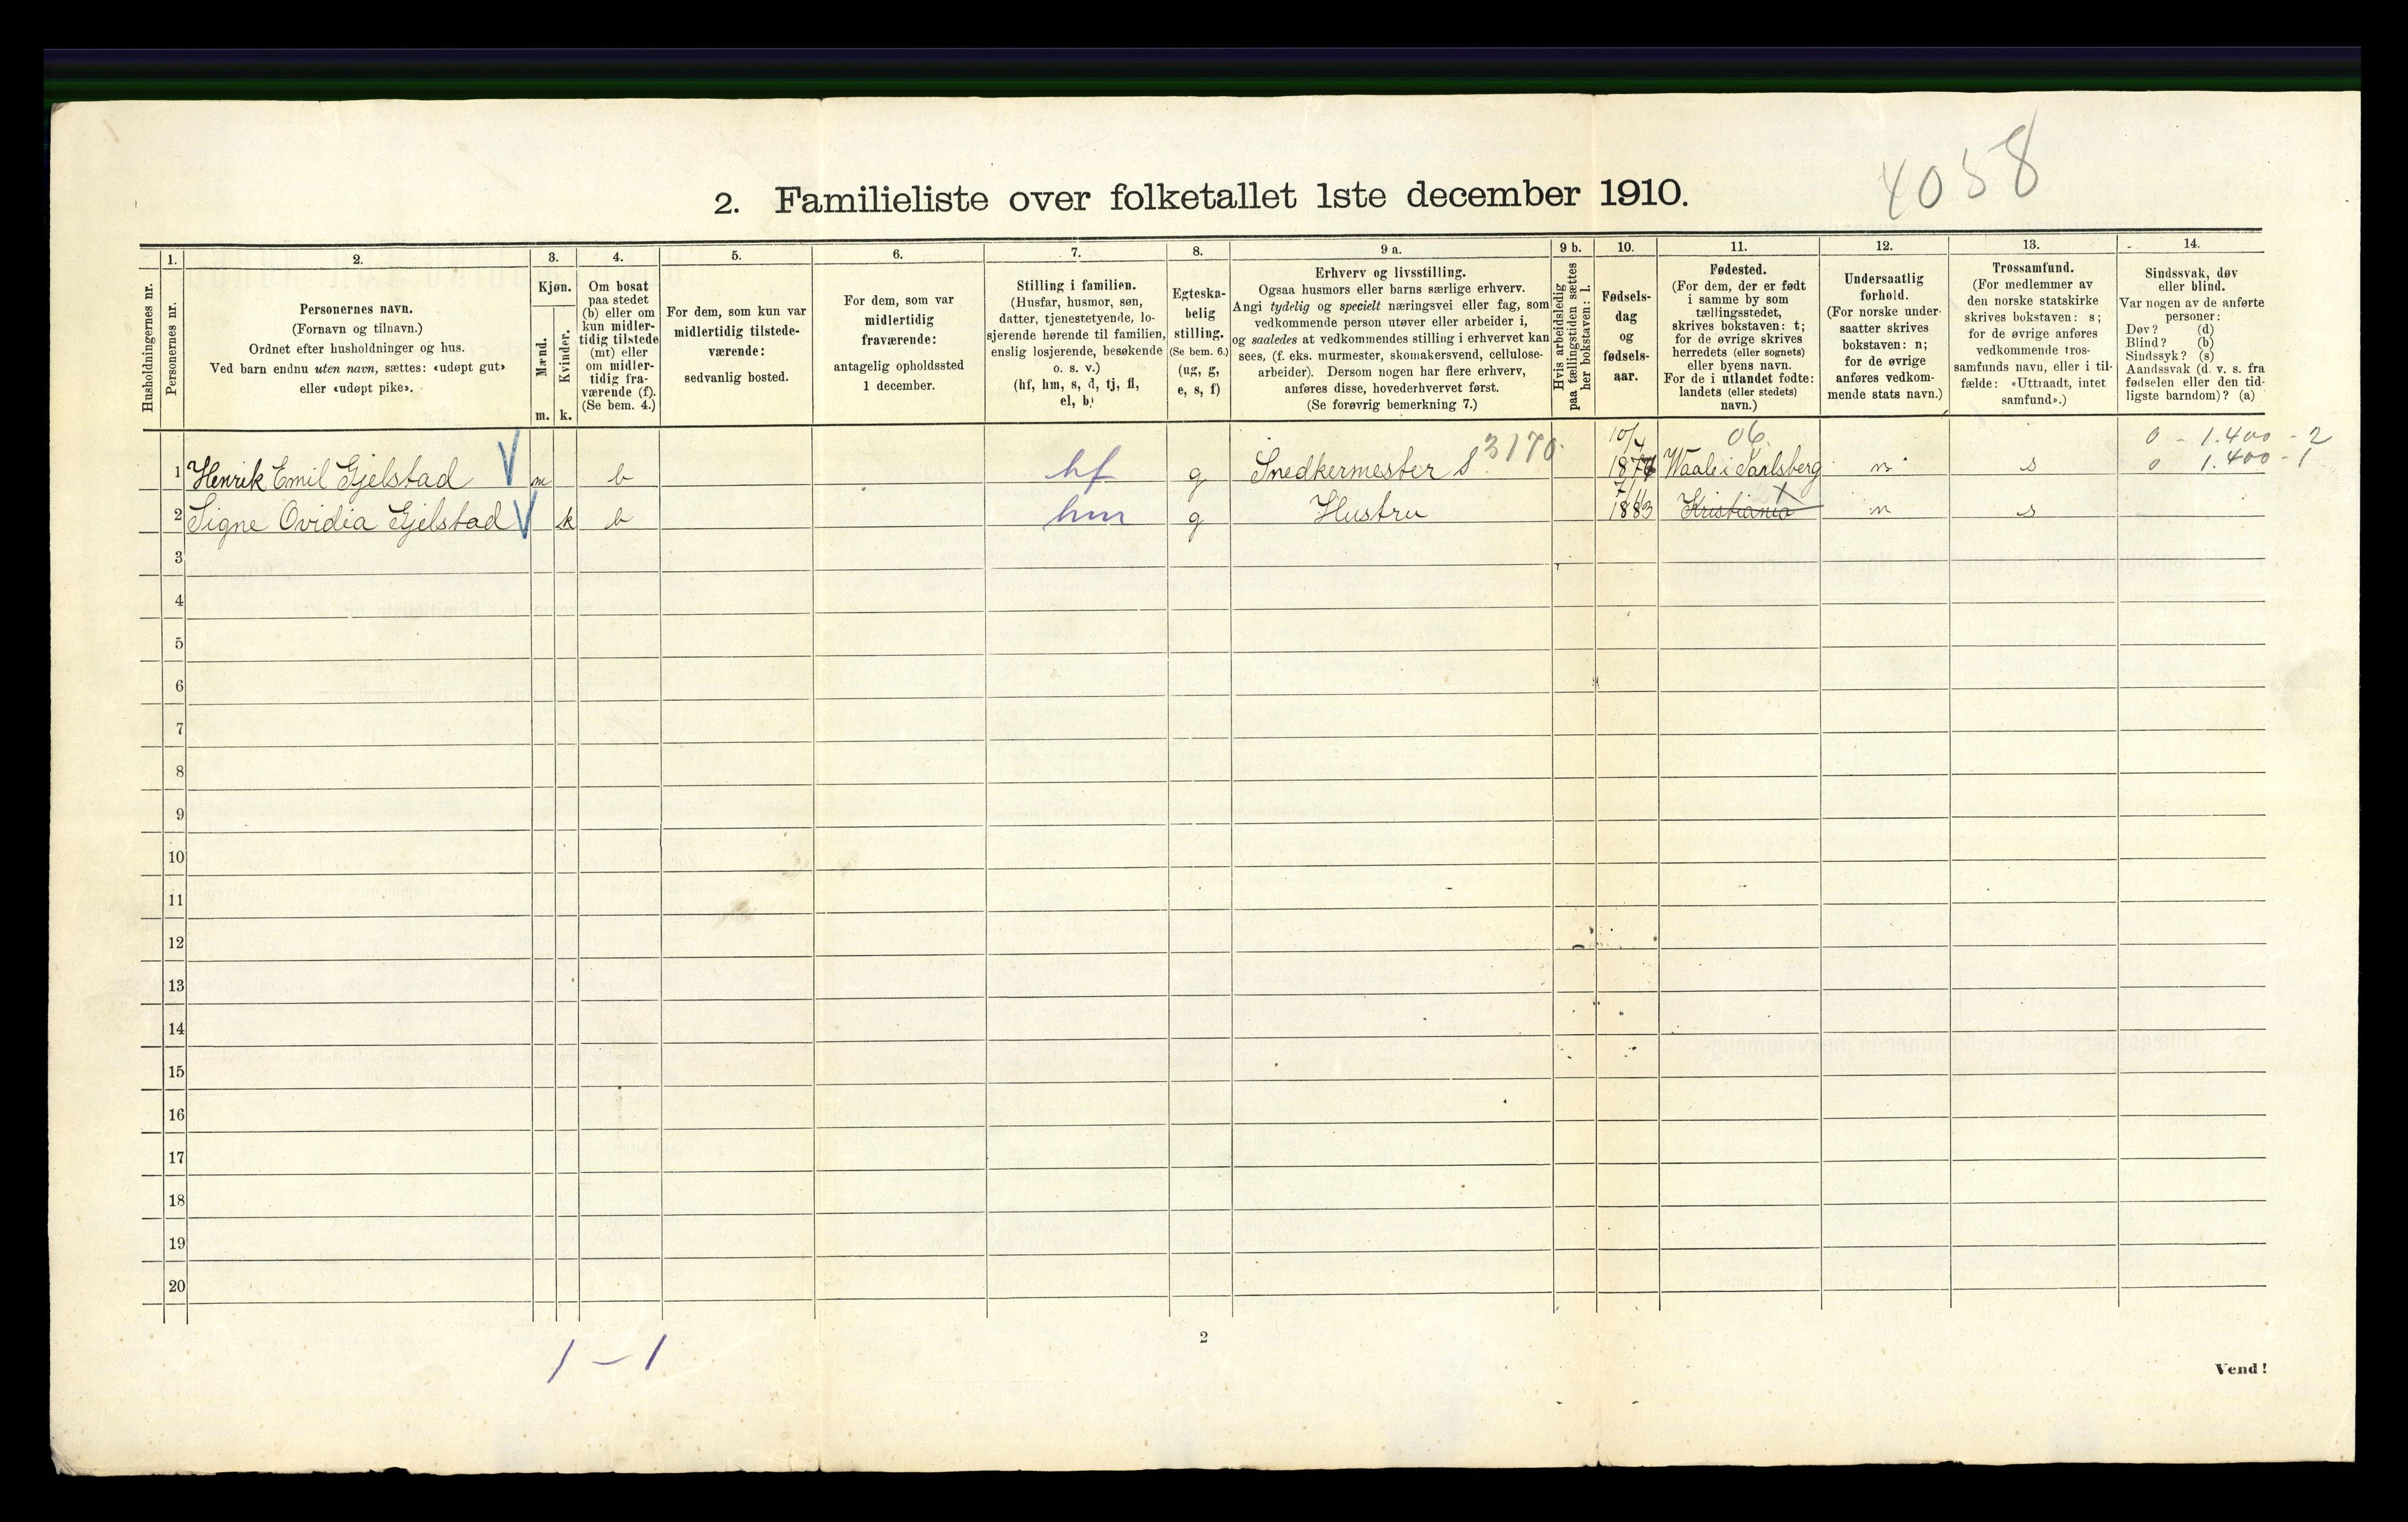 4058
2. Familieliste over folketallet 1ste december 1910.
Husholdningernes nr.
1. Personernes nr.
2. Personernes navn. (Fornavn og tilnavn.) Ordnet efter husholdninger og hus. Ved barn endnu uten navn, sættes: «udøpt gut» eller «udøpt pike».
3. Kjøn. Mænd. m. Kvinder. k.
4. Om bosat paa stedet (b) eller om kun midlertidig tilstede (mt) eller om midlertidig fraværende (f). (Se bem. 4.)
5. For dem, som kun var midlertidig tilstedeværende: sedvanlig bosted.
6. For dem, som var midlertidig fraværende: antagelig opholdssted 1 december.
7. Stilling i familien. (Husfar, husmor, søn, datter, tjenestetyende, losjerende hørende til familien, enslig losjerende, besøkende o. s. v.) (hf, hm, s, d, tj, fl, el, b)
8. Egteskabelig stilling. (Se bem. 6.) (ug, g, e, s, f)
9 a. Erhverv og livsstilling. Ogsaa husmors eller barns særlige erhverv. Angi tydelig og specielt næringsvei eller fag, som vedkommende person utøver eller arbeider i, og saaledes at vedkommendes stilling i erhvervet kan sees, (f. eks. murmester, skomakersvend, cellulosearbeider). Dersom nogen har flere erhverv, anføres disse, hovederhvervet først. (Se forøvrig bemerkning 7.)
9 b. Hvis arbeidsledig paa tællingstiden sættes her bokstaven: l.
10. Fødselsdag og fødselsaar.
11. Fødested. (For dem, der er født i samme by som tællingsstedet, skrives bokstaven: t; for de øvrige skrives herredets (eller sognets) eller byens navn. For de i utlandet fødte: landets (eller stedets) navn.)
12. Undersaatlig forhold. (For norske undersaatter skrives bokstaven: n; for de øvrige anføres vedkommende stats navn.)
13. Trossamfund. (For medlemmer av den norske statskirke skrives bokstaven: s; for de øvrige anføres vedkommende trossamfunds navn, eller i tilfælde: «Uttraadt, intet samfund».)
14. Sindssvak, døv eller blind. Var nogen av de anførte personer: Døv? (d) Blind? (b) Sindssyk? (s) Aandssvak (d. v. s. fra fødselen eller den tidligste barndom)? (a)
06. 0 - 1.400 - 2
1 Henrik Emil Gjelstad V m b hf g Snedkermester S 3170. 10/4 Waale i Jarlsberg n s 0 1.400 - 1
2 Signe Ovidia Gjelstad V k b hm g Hustru 7/11 1883 Kristiania t n s
3
4
5
6
7
8
9
10
11
12
13
14
15
16
17
18
19
20
1 - 1
2
Vend!